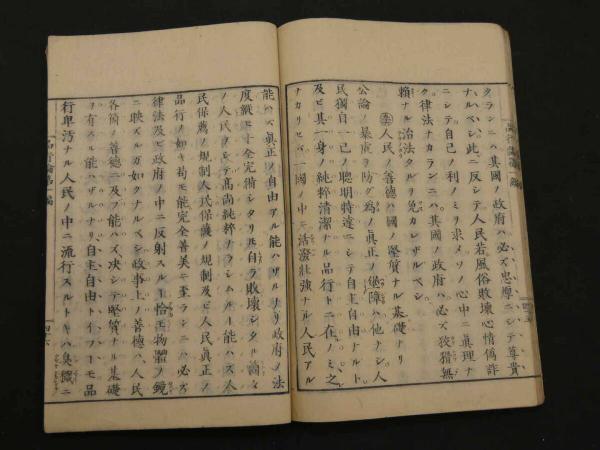 クランニハ其國ノ政府ハ必ズ忠厚ニシテ尊貴
ナルベシ此ニ反シテ人民若風俗敗壞心情僞詐
ニシテ自己ノ利ノミヲ求メソノ心中ニ眞理ナ
ク律法ナカランニハ其國ノ政府ハ必ズ狡猾無
賴ナル治法タルヲ免カレザルベシ
人民ノ善德ハ國ノ堅實ナル基礎ナリ
公論ノ暴虐ヲ防グ爲ノ眞正ノ保障ハ他ナシ人
民獨自一己ノ聰明特達ニシテ自由ナルト
及ビ其一身ノ純粹清潔ナル品行トニ在ノミ之
ナカリセバ一國ノ中ニ活潑壯強ナル人民アル
能ハズ眞正ノ自由アル能ハザルナリ政府ノ法
度縱ヒ十全完備シタリ𪜈自ラ敗壞シタル
ノ人民ヲシテ高尚純粹ナラシムルー能ハズ人
民保薦ノ規制人民保護ノ規制及ビ人民眞正ノ
品行ノ如キ苟モ能完全善美ニ至ランニハ必ズ
律法及ビ政府ノ中ニ反射スルー恰モ物體ノ鏡
ニ映ズルガゴトクナルベシ政事上ノ善德ハ人民
各箇ノ善德ニ及ブ能ハズ决シテ堅實ナル基礎
ヲ有スル能ハザルナリ自主自由トイフーモ品
行卑汚ナル人民ノ中ニ流行スルトキハ臭穢ニ
品行論第一編
四十六